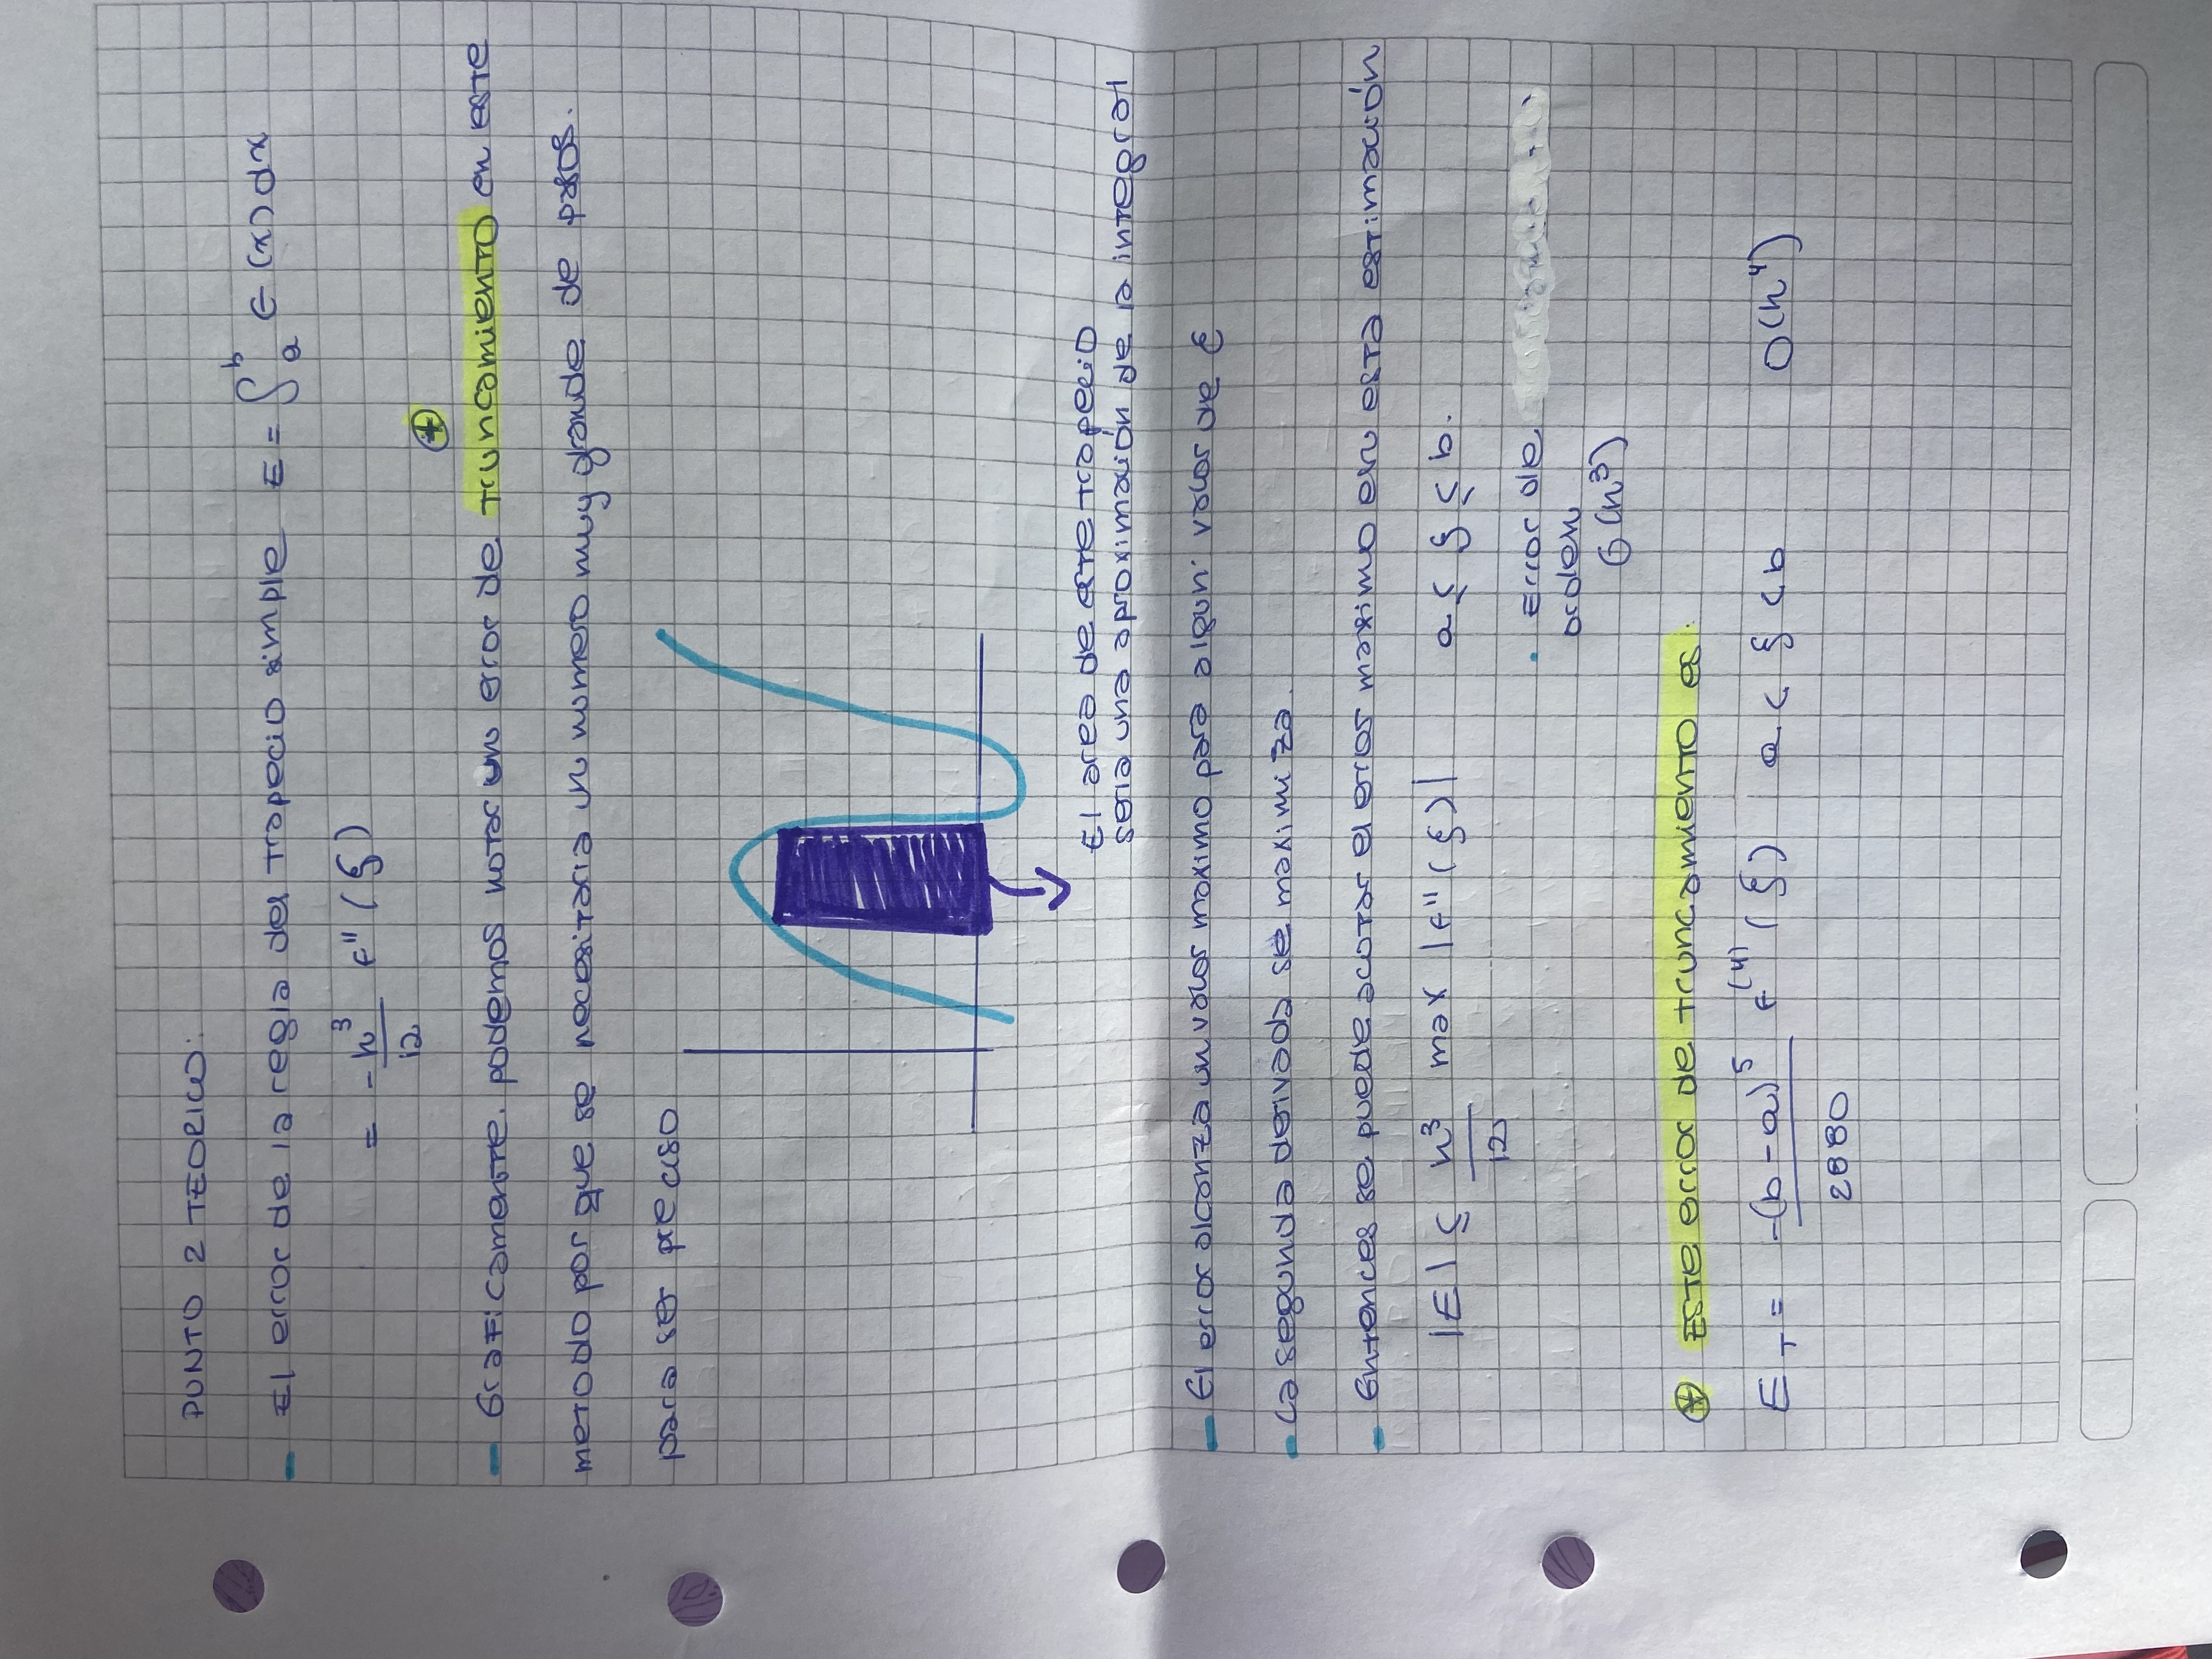 PUNTO 2 TEORICO:
- El error de la regla del trapecio simple E = ∫ₐᵇ ϵ (x) dx
= -h³/12 f'' (ξ)
⊕
- Graficamente. podemos notar un error de truncamiento en este
metodo por que se necesitaria un numero muy grande de pasos.
para ser preciso
El area de este trapecio
seria una aproximación de la integral
- El error alcanza un valor maximo para algun valor de ξ
- La segunda derivada se maximiza.
- Entences se puede acotar el error maximo en esta estimación
|E| ≤ h³/12 max |f'' (ξ)| a ≤ ξ ≤ b.
• Error de
orden
O (h³)
⊕ Este error de truncamiento es:
E_T = -(b-a)⁵/2880 f⁽⁴⁾ (ξ) a < ξ < b O(h⁴)